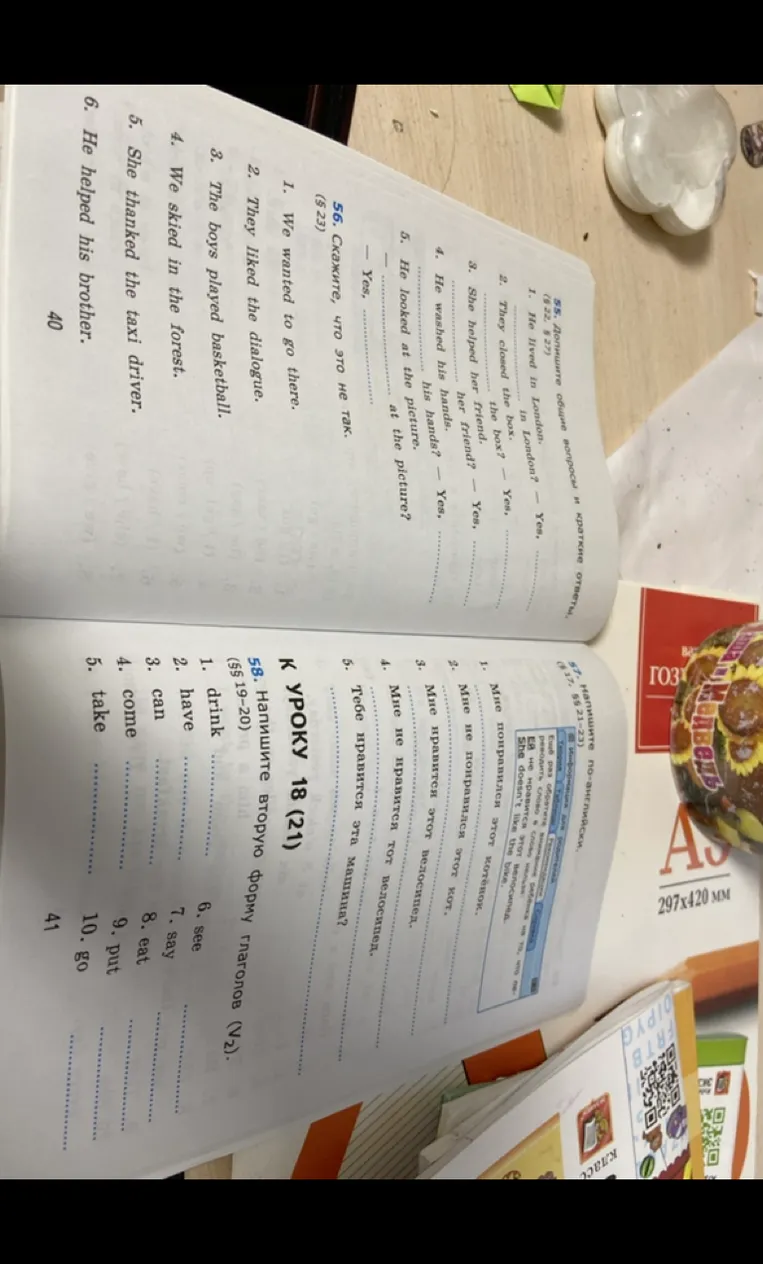 55. Допишите общие вопросы и краткие ответы.
(§ 22, § 27)
1. He lived in London.
in London? — Yes,
2. They closed the box.
the box? — Yes,
3. She helped her friend.
her friend? — Yes,
4. He washed his hands.
his hands? — Yes,
5. He looked at the picture.
— at the picture?
— Yes,
56. Скажите, что это не так.
(§ 23)
1. We wanted to go there.
2. They liked the dialogue.
3. The boys played basketball.
4. We skied in the forest.
5. She thanked the taxi driver.
6. He helped his brother.
40
57. Напишите по-английски.
(§ 17, §§ 21–23)
Информация для
Ещё раз обратите внимание ребёнка на то, что пе-
реводить слово в слово нельзя:
Ей не нравится этот велосипед.
She doesn't like the bike.
1. Мне понравился этот котёнок.
2. Мне не понравился этот кот.
3. Мне нравится этот велосипед.
4. Мне не нравится тот велосипед.
5. Тебе нравится эта машина?
К УРОКУ 18 (21)
58. Напишите вторую форму глаголов (V2).
(§§ 19–20)
1. drink 6. see
2. have 7. say
3. can 8. eat
4. come 9. put
5. take 10. go
41
Медведь
ГОЗ
А3
297x420 мм
класс